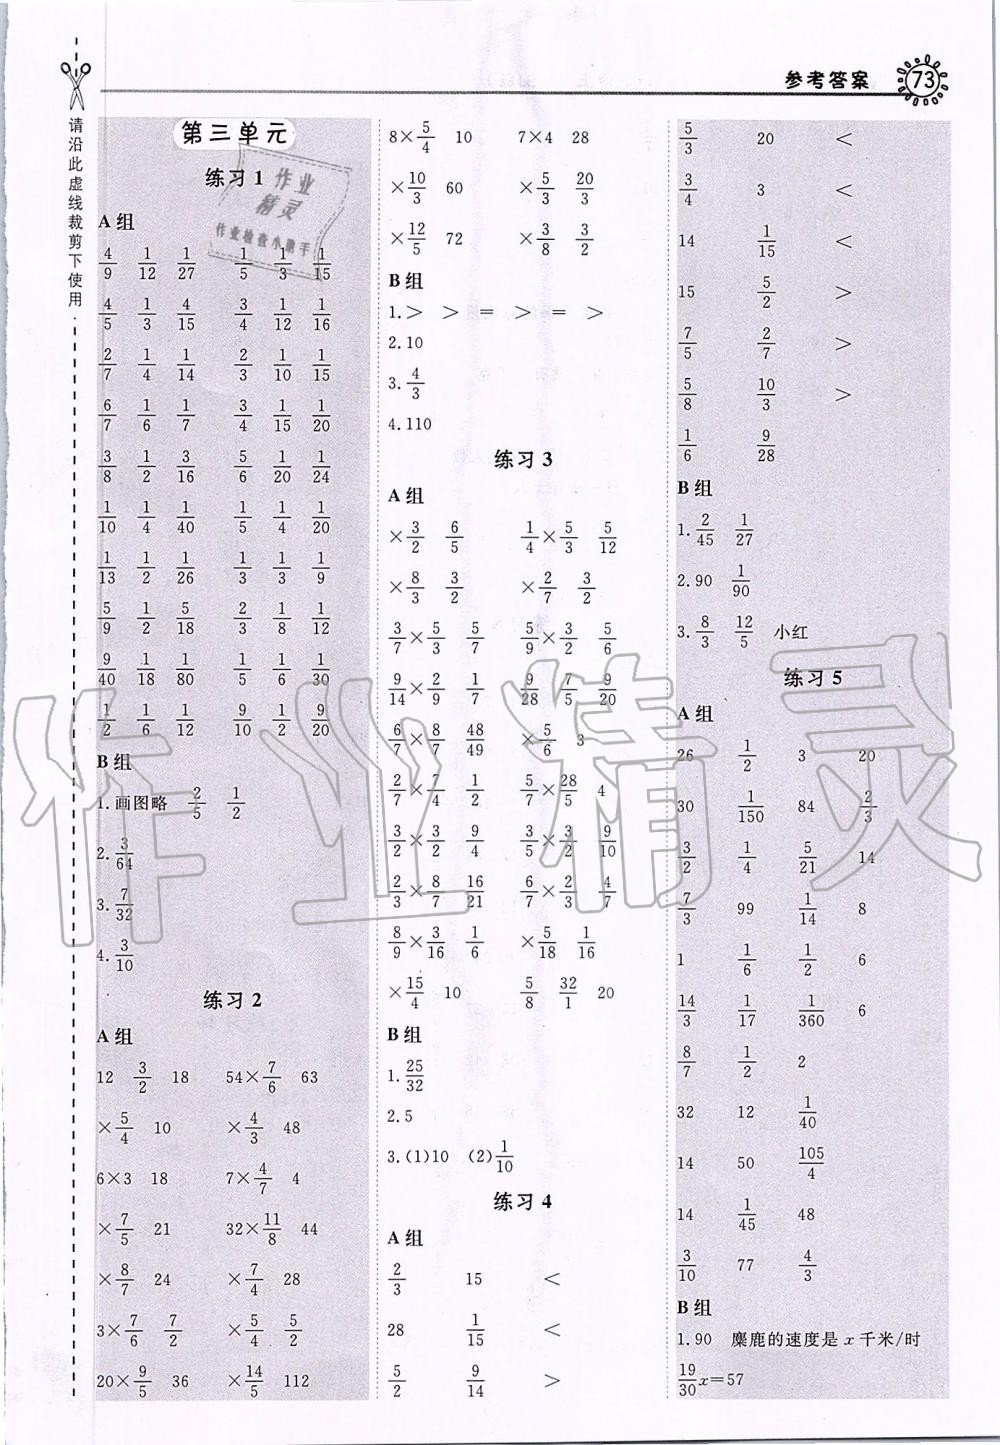 参考答案 73
请沿此虚线裁剪下使用
第三单元
练习 1
作业
精灵
作业检查小助手
A 组
4/9 1/12 1/27 1/5 1/3 1/15
4/5 1/3 4/15 3/4 1/12 1/16
2/7 1/4 1/14 2/3 1/10 1/15
6/7 1/6 1/7 3/4 1/15 1/20
3/8 1/2 3/16 5/6 1/20 1/24
1/10 1/4 1/40 1/5 1/4 1/20
1/13 1/2 1/26 1/3 1/3 1/9
5/9 1/2 5/18 2/3 1/8 1/12
9/40 1/18 1/80 1/5 1/6 1/30
1/2 1/6 1/12 9/10 1/2 9/20
B 组
1.画图略 2/5 1/2
2. 3/64
3. 7/32
4. 3/10
练习 2
A 组
12 3/2 18 54×7/6 63
×5/4 10 ×4/3 48
6×3 18 7×4/7 4
×7/5 21 32×11/8 44
×8/7 24 ×7/4 28
3×7/6 7/2 ×5/4 5/2
20×9/5 36 ×14/5 112
8×5/4 10 7×4 28
×10/3 60 ×5/3 20/3
×12/5 72 ×3/8 3/2
B 组
1.> > = > = >
2.10
3. 4/3
4.110
练习 3
A 组
×3/2 6/5 1/4×5/3 5/12
×8/3 3/2 ×2/7 3/2
3/7×5/3 5/7 5/9×3/2 5/6
9/14×2/9 1/7 9/28 7/5 9/20
6/7×8/7 48/49 ×5/6 3
2/7×7/4 1/2 5/7×28/5 4
3/2×3/2 9/4 3/5×3/2 9/10
2/3×8/7 16/21 6/7×2/3 4/7
8/9×3/16 1/6 ×5/18 1/16
×15/4 10 5/8 32/1 20
B 组
1. 25/32
2.5
3.(1)10 (2)1/10
练习 4
A 组
2/3 15 <
28 1/15 <
5/2 9/14 >
5/3 20 <
3/4 3 <
14 1/15 <
15 5/2 >
7/5 2/7 >
5/8 10/3 >
1/6 9/28
B 组
1. 2/45 1/27
2.90 1/90
3. 8/3 12/5 小红
练习 5
A 组
26 1/2 3 20
30 1/150 84 2/3
3/2 1/4 5/21 14
7/3 99 1/14 8
1 1/6 1/2 6
14/3 1/17 1/360 6
8/7 1/2 2
32 12 1/40
14 50 105/4
14 1/45 48
3/10 77 4/3
B 组
1.90 麋鹿的速度是 x 千米/时
19/30 x=57
作业精灵